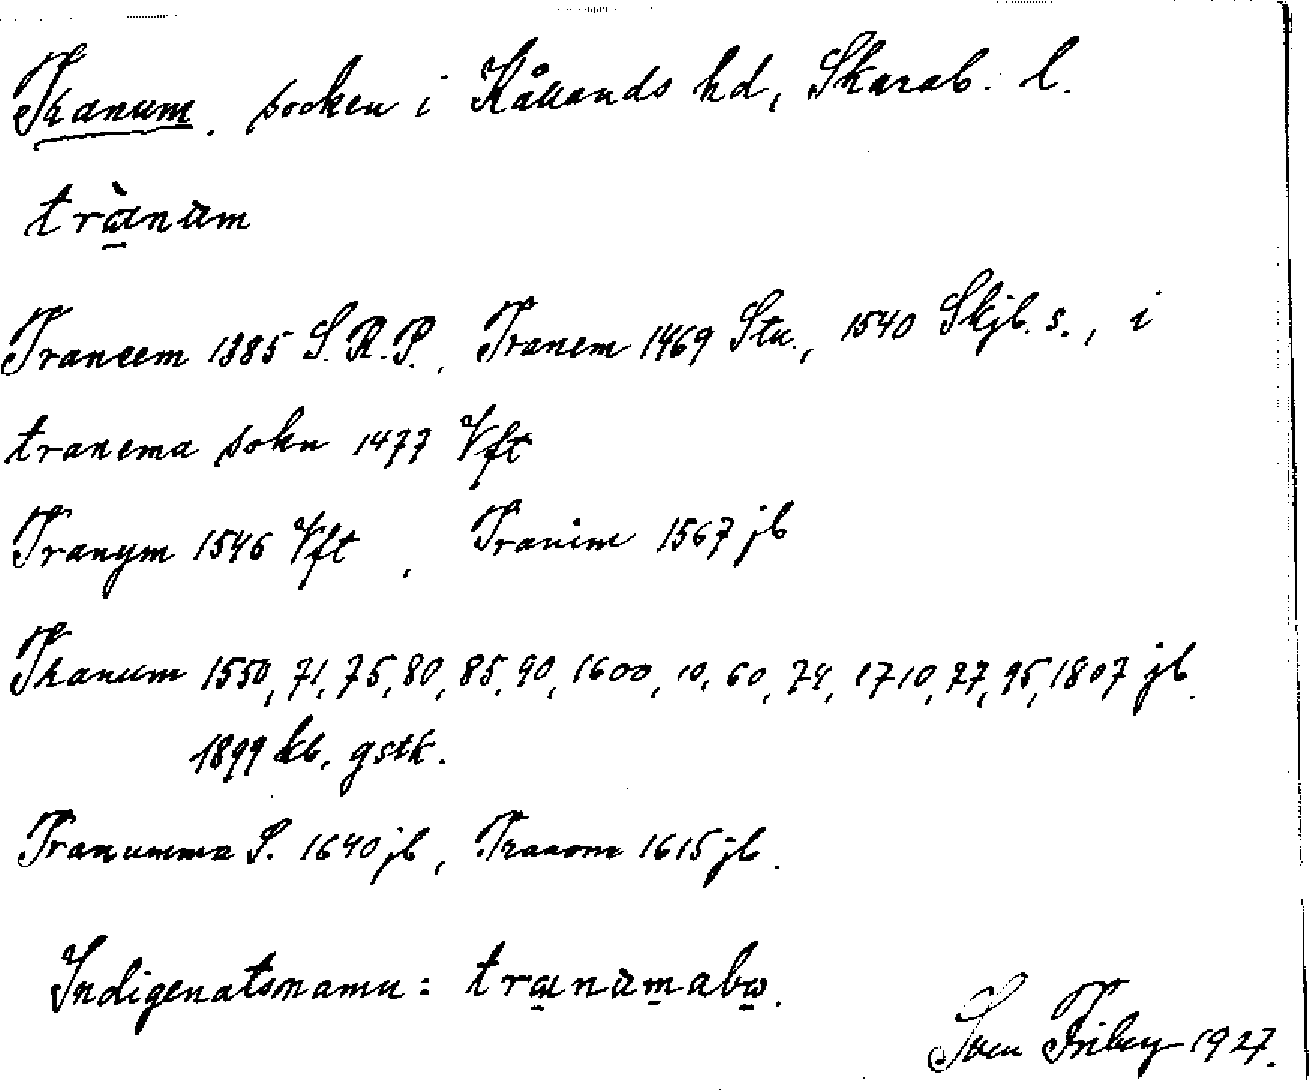 Tranum. socken i Kållands hd, Skarab. l.
trànam
Traneem 1385 S.R.P., Tranem 1469 Stu., 1540 Skjb. s., i
tranema sokn 1477 Vft
Tranym 1546 Vft , Tranim 1567 jb
Tranum 1550, 71, 75, 80, 85, 90, 1600, 10, 60, 74, 1710, 77, 95, 1807 jb.
1899 kb, gstk.
Tranumma S. 1640 jb, Tranom 1615 jb.
Indigenatsnamn: tranamabo.
Sven Friby 1927.